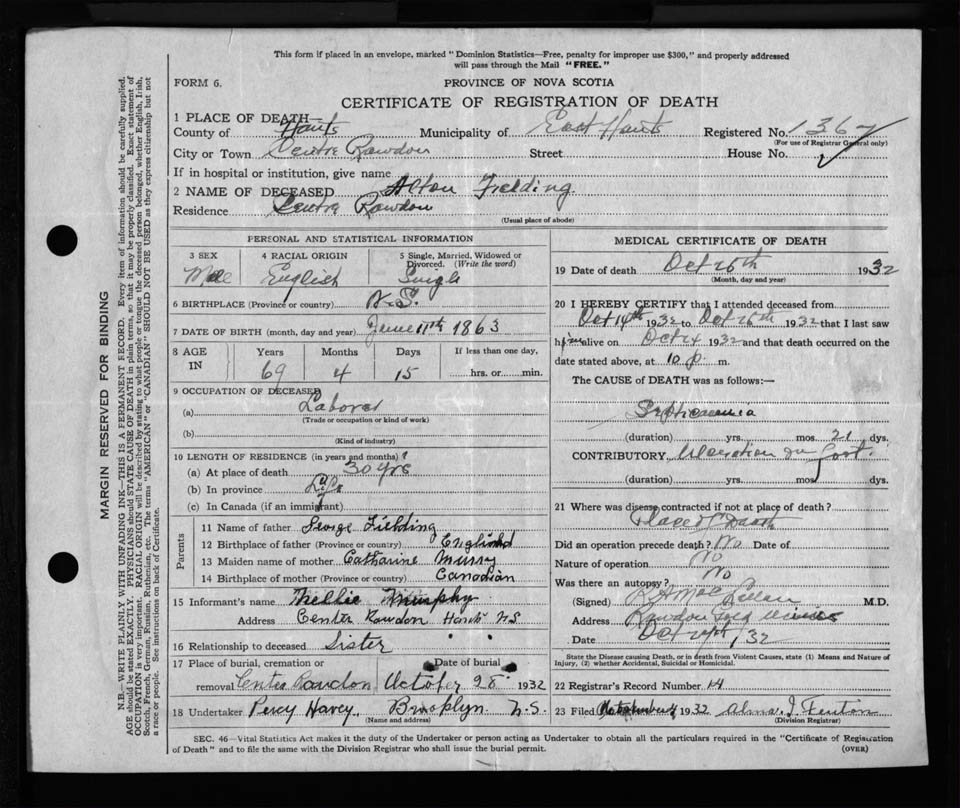 This form if placed in an envelope, marked "Dominion Statistics—Free, penalty for improper use $300," and properly addressed
will pass through the Mail "FREE."
FORM 6.
PROVINCE OF NOVA SCOTIA
CERTIFICATE OF REGISTRATION OF DEATH
1 PLACE OF DEATH—
County of Hants Municipality of East Hants Registered No. 1367
(For use of Registrar General only)
City or Town Centre Rawdon Street House No.
If in hospital or institution, give name
2 NAME OF DECEASED Alton Fielding
Residence Centre Rawdon
(Usual place of abode)
PERSONAL AND STATISTICAL INFORMATION
3 SEX 4 RACIAL ORIGIN 5 Single, Married, Widowed or Divorced. (Write the word)
Male English Single
6 BIRTHPLACE (Province or country) N.S.
7 DATE OF BIRTH (month, day and year) June 11th 1863
8 AGE IN Years Months Days If less than one day,
69 4 15 hrs. or min.
9 OCCUPATION OF DECEASED
(a) Laborer
(Trade or occupation or kind of work)
(b)
(Kind of industry)
10 LENGTH OF RESIDENCE (in years and months)
(a) At place of death 30 yrs
(b) In province Life
(c) In Canada (if an immigrant)
Parents
11 Name of father George Fielding
12 Birthplace of father (Province or country) England
13 Maiden name of mother Catharine
14 Birthplace of mother (Province or country) Canadian
15 Informant's name Nellie Murphy
Address Center Rawdon Hants N.S.
16 Relationship to deceased Sister
17 Place of burial, cremation or Date of burial
removal Center Rawdon October 28 1932
18 Undertaker Percy Harvey Brooklyn N.S.
(Name and address)
MEDICAL CERTIFICATE OF DEATH
19 Date of death Oct 26th 1932
(Month, day and year)
20 I HEREBY CERTIFY that I attended deceased from
Oct 14th 1932 to Oct 26th 1932 that I last saw
him alive on Oct 24 1932 and that death occurred on the
date stated above, at 10 p. m.
The CAUSE of DEATH was as follows:—
Septicaemia
(duration) yrs. mos. 21 dys.
CONTRIBUTORY Ulceration on foot.
(duration) yrs. mos. dys.
21 Where was disease contracted if not at place of death?
Place of Death
Did an operation precede death? No Date of
Nature of operation No
Was there an autopsy? No
(Signed) M.D.
Address Rawdon Gold Mines
Date Oct 1932
State the Disease causing Death, or in death from Violent Causes, state (1) Means and Nature of
Injury, (2) whether Accidental, Suicidal or Homicidal.
22 Registrar's Record Number 14
23 Filed 1932 Alma J. Fenton
(Division Registrar)
SEC. 46—Vital Statistics Act makes it the duty of the Undertaker or person acting as Undertaker to obtain all the particulars required in the "Certificate of Registration
of Death" and to file the same with the Division Registrar who shall issue the burial permit. (OVER)
MARGIN RESERVED FOR BINDING
N.B.—WRITE PLAINLY WITH UNFADING INK—THIS IS A PERMANENT RECORD. Every item of information should be carefully supplied.
AGE should be stated EXACTLY. PHYSICIANS should STATE CAUSE OF DEATH in plain terms, so that it may be properly classified. Exact statement of
OCCUPATION is very important. RACIAL ORIGIN will be described by stating to what people or tongue the deceased person belonged, whether English, Irish,
Scotch, French, German, Russian, Ruthenian, etc. The terms "AMERICAN" or "CANADIAN" SHOULD NOT BE USED as they express citizenship but not
a race or people. See instructions on back of Certificate.